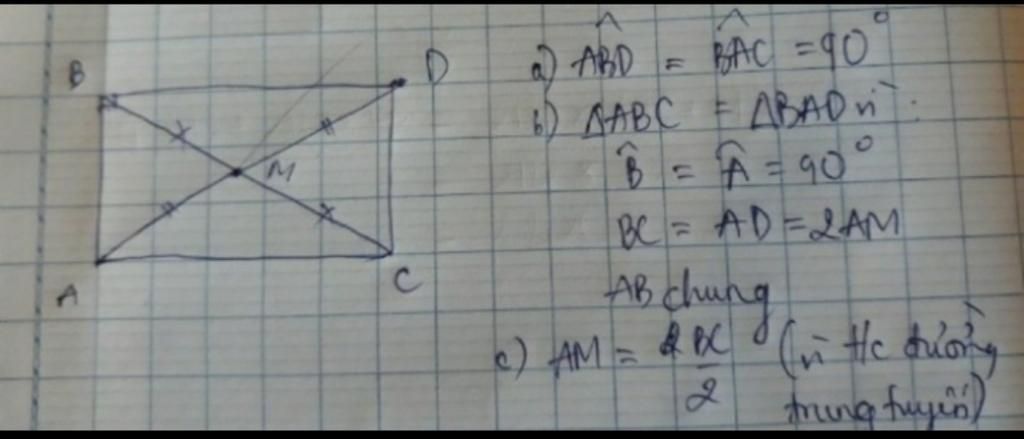 B
D
M
A
C
a) ABD̂ = BAĈ = 90°
b) ΔABC = ΔBAD vì :
B̂ = Â = 90°
BC = AD = 2AM
AB chung
c) AM = BC/2 (vì t/c đường
trung tuyến)